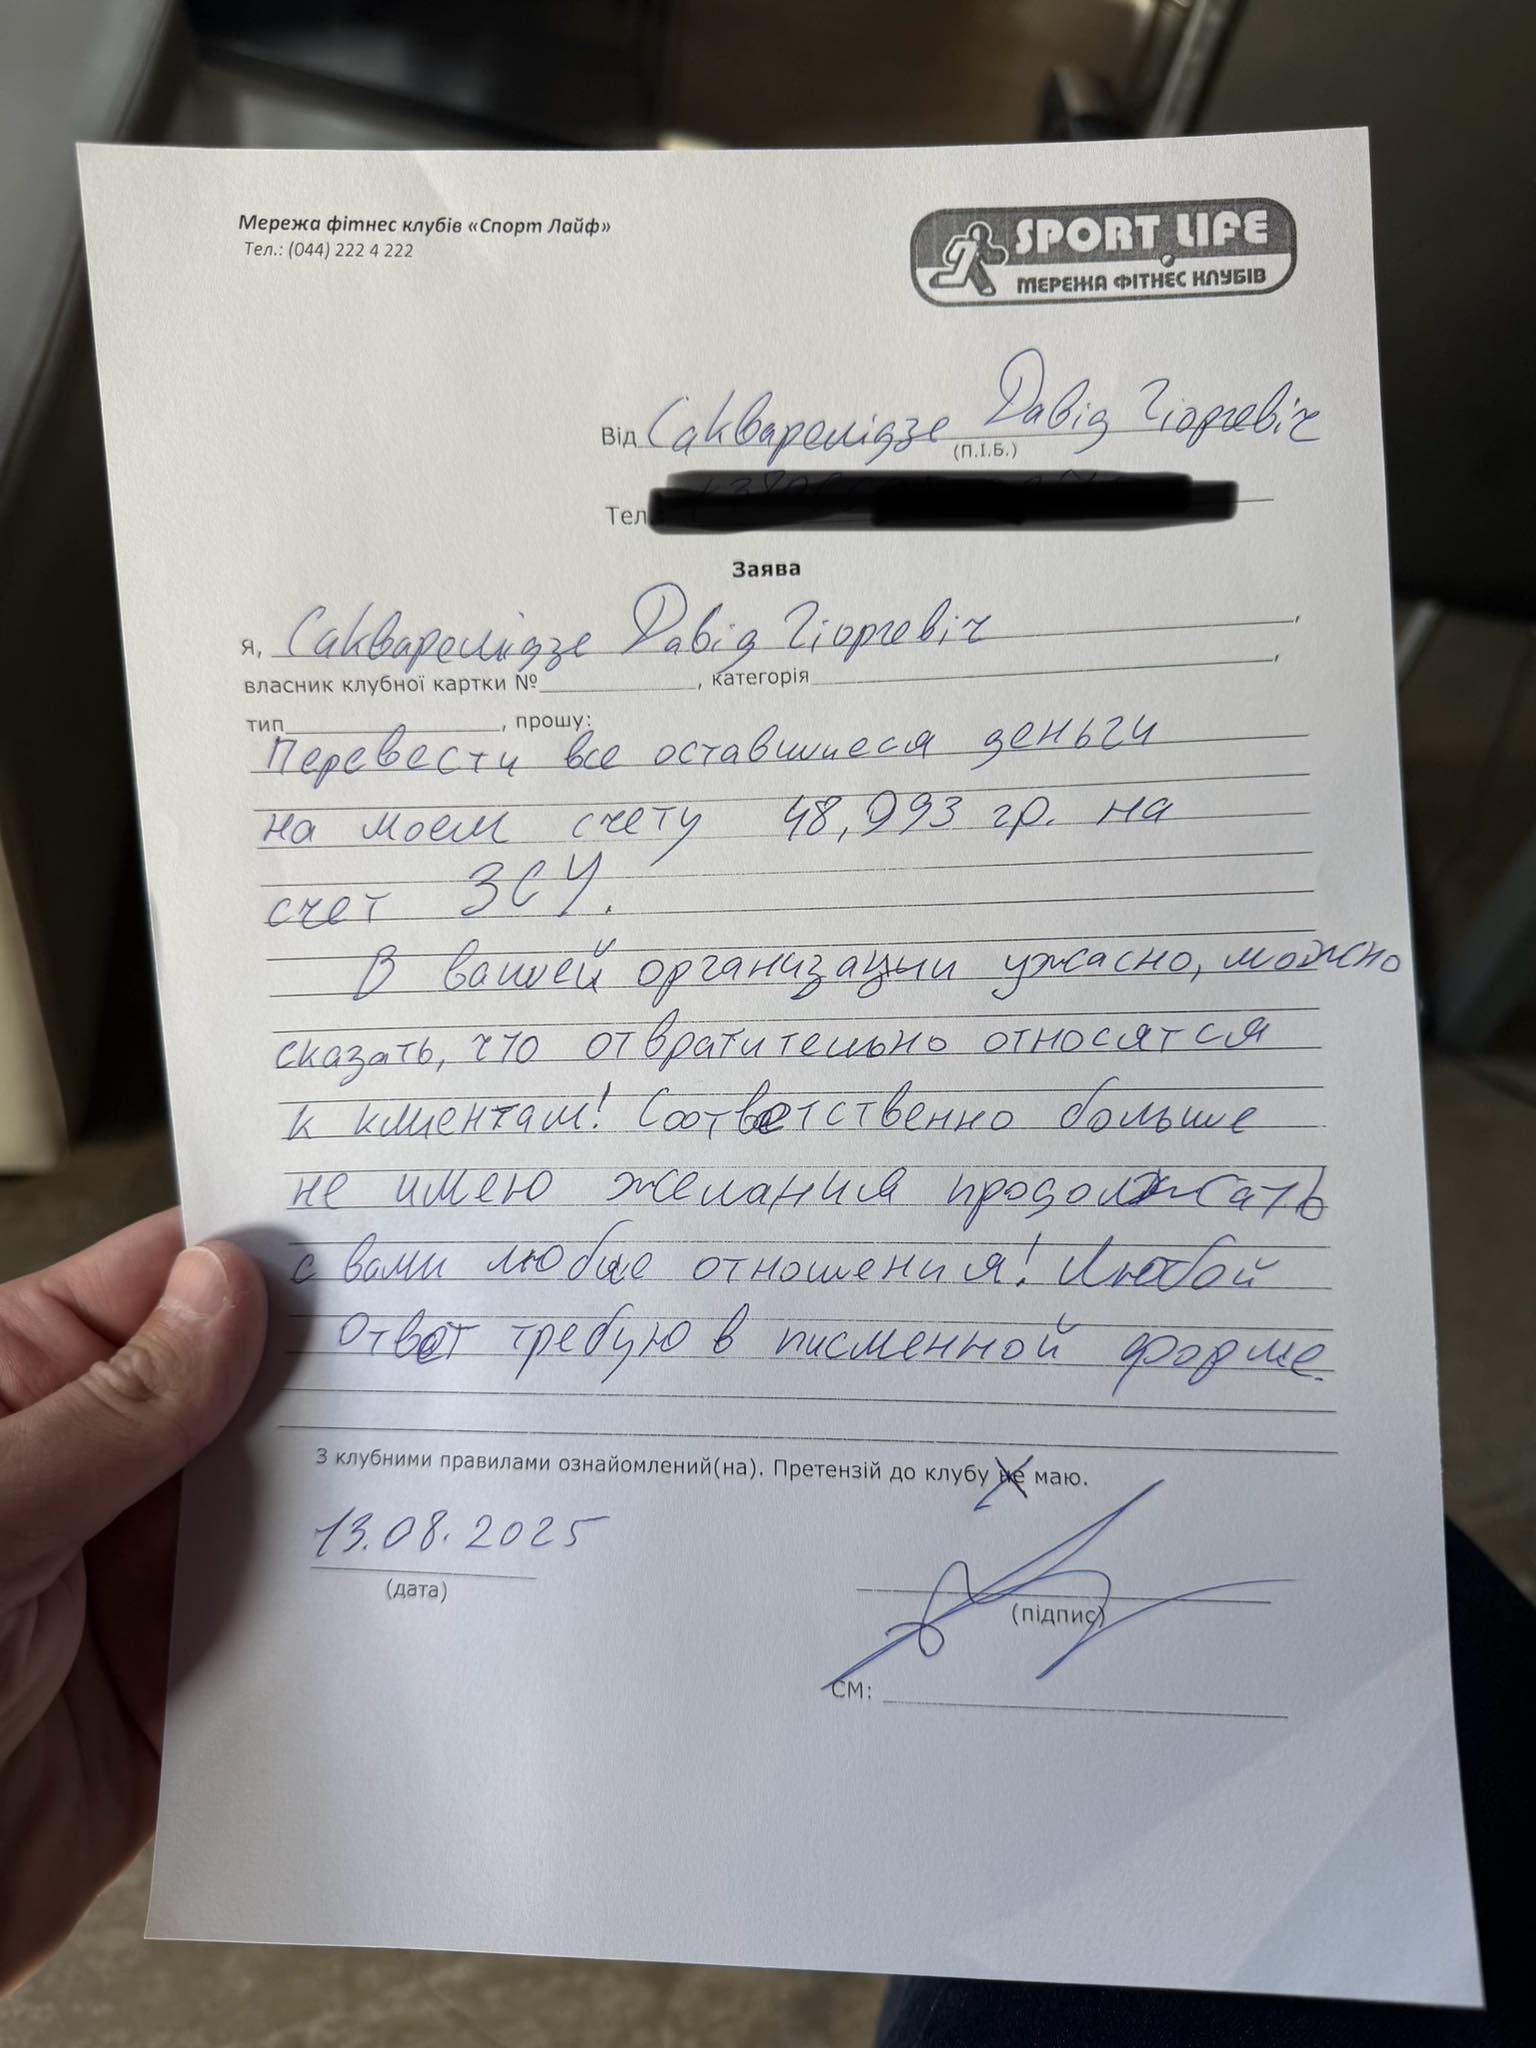 Мережа фітнес клубів «Спорт Лайф»
Тел.: (044) 222 4 222
SPORT LIFE
МЕРЕЖА ФІТНЕС КЛУБІВ
Від Сакварелідзе Давід Гіоргевіч
(П.І.Б.)
Тел
Заява
Я, Сакварелідзе Давід Гіоргевіч,
власник клубної картки №____________, категорія____________,
тип____________, прошу:
Перевести все оставшиеся деньги
на моем счету 48,993 гр. на
счет ЗСУ.
В вашей организации ужасно, можно
сказать, что отвратительно относятся
к клиентам! Соответственно больше
не имею желания продолжать
с вами любые отношения! Любой
Ответ требую в писменной форме.
З клубними правилами ознайомлений(на). Претензій до клубу не маю.
13.08.2025
(дата)
(підпис)
СМ: